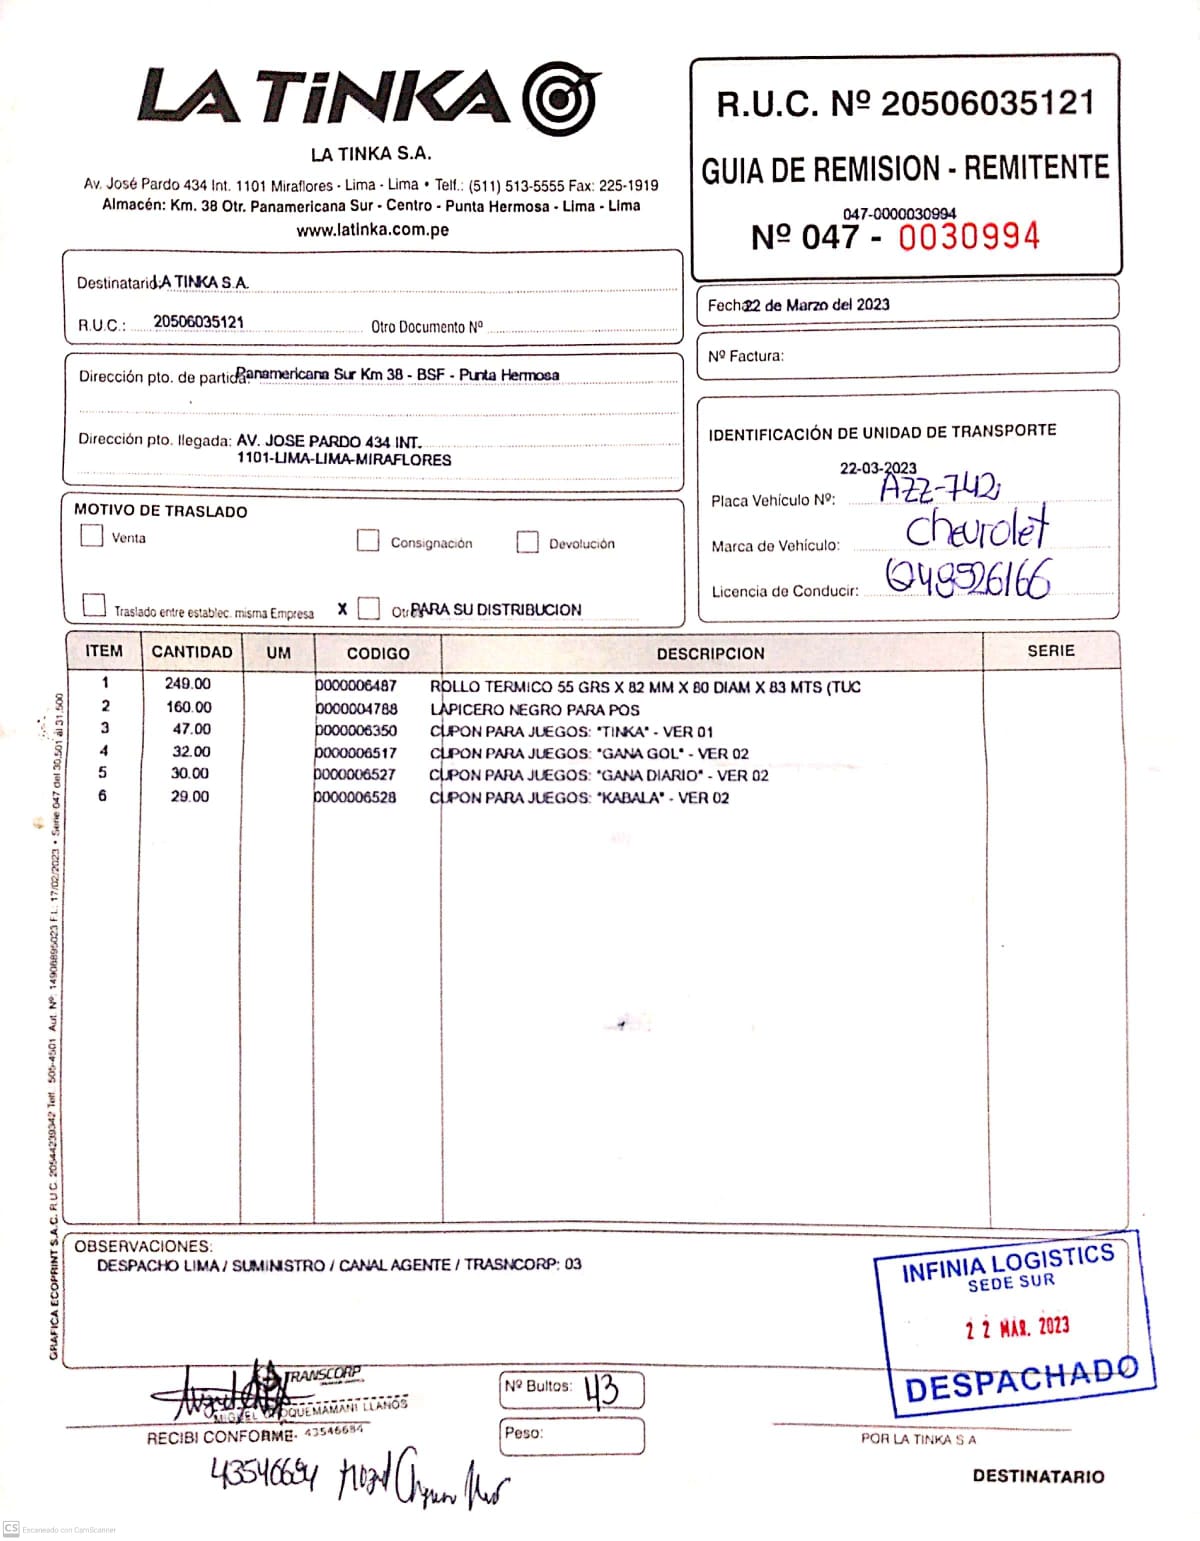 LA TiNKA
LA TINKA S.A.
Av. José Pardo 434 Int. 1101 Miraflores - Lima - Lima • Telf.: (511) 513-5555 Fax: 225-1919
Almacén: Km. 38 Otr. Panamericana Sur - Centro - Punta Hermosa - Lima - Lima
www.latinka.com.pe
R.U.C. Nº 20506035121
GUIA DE REMISION - REMITENTE
047-0000030994
Nº 047 - 0030994
Destinatario LA TINKA S.A.
R.U.C.: 20506035121 Otro Documento Nº
Fecha 22 de Marzo del 2023
Nº Factura:
Dirección pto. de partida: Panamericana Sur Km 38 - BSF - Punta Hermosa
Dirección pto. llegada: AV. JOSE PARDO 434 INT.
1101-LIMA-LIMA-MIRAFLORES
IDENTIFICACIÓN DE UNIDAD DE TRANSPORTE
22-03-2023
Placa Vehículo Nº: AZZ-742
Marca de Vehículo: Chevrolet
Licencia de Conducir: Q48526166
MOTIVO DE TRASLADO
Venta Consignación Devolución
Traslado entre establec. misma Empresa X Otr PARA SU DISTRIBUCION
ITEM CANTIDAD UM CODIGO DESCRIPCION SERIE
1 249.00 0000006487 ROLLO TERMICO 55 GRS X 82 MM X 80 DIAM X 83 MTS (TUC
2 160.00 0000004788 LAPICERO NEGRO PARA POS
3 47.00 0000006350 CUPON PARA JUEGOS: "TINKA" - VER 01
4 32.00 0000006517 CUPON PARA JUEGOS: "GANA GOL" - VER 02
5 30.00 0000006527 CUPON PARA JUEGOS: "GANA DIARIO" - VER 02
6 29.00 0000006528 CUPON PARA JUEGOS: "KABALA" - VER 02
GRAFICA ECOPRINT S.A.C. R.U.C. 20544239342 Telf. 505-4501 Aut. Nº 14906895023 F.I.: 17/02/2023 • Serie 047 del 30,501 al 31,500
OBSERVACIONES:
DESPACHO LIMA / SUMINISTRO / CANAL AGENTE / TRASNCORP: 03
INFINIA LOGISTICS
SEDE SUR
22 MAR. 2023
DESPACHADO
TRANSCORP
MIGUEL CHOQUEMAMANI LLANOS
RECIBI CONFORME 43546684
43546684
Nº Bultos: 43
Peso:
POR LA TINKA S A
DESTINATARIO
CS Escaneado con CamScanner